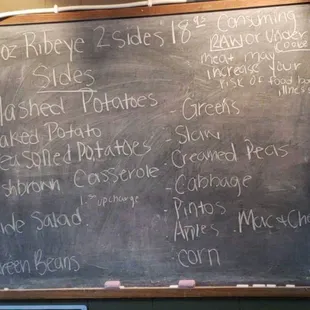 oz Ribeye 2 sides 18.95
Consuming
RAW or Under
Cooked
meat may
increase your
risk of food bo
illness
Sides
Mashed Potatoes
aked Potato
easoned Potatoes
shbrown Casserole
1.50 upcharge
Salad
reen Beans
- Greens
- Slaw
- Creamed Peas
- Cabbage
- Pintos
- Apples
- Mac + Che
- Corn